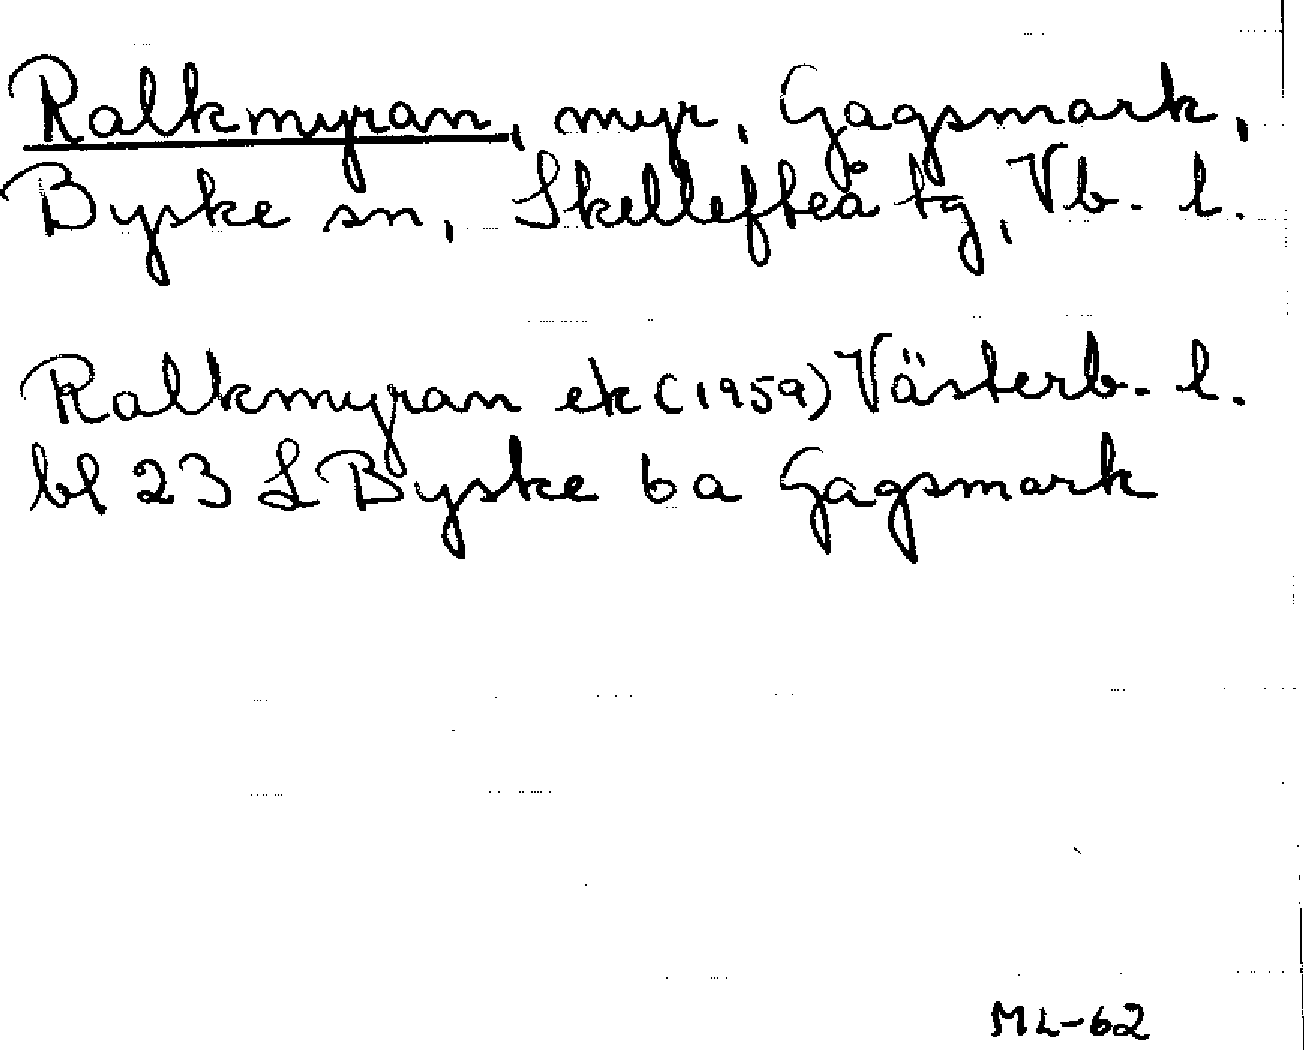 Ralkmyran, myr, Gagsmark,
Byske sn, Skellefteå tg, Vb. l.
Ralkmyran ek (1959) Västerb. l.
bl 23 L Byske 6 a Gagsmark
ML-62